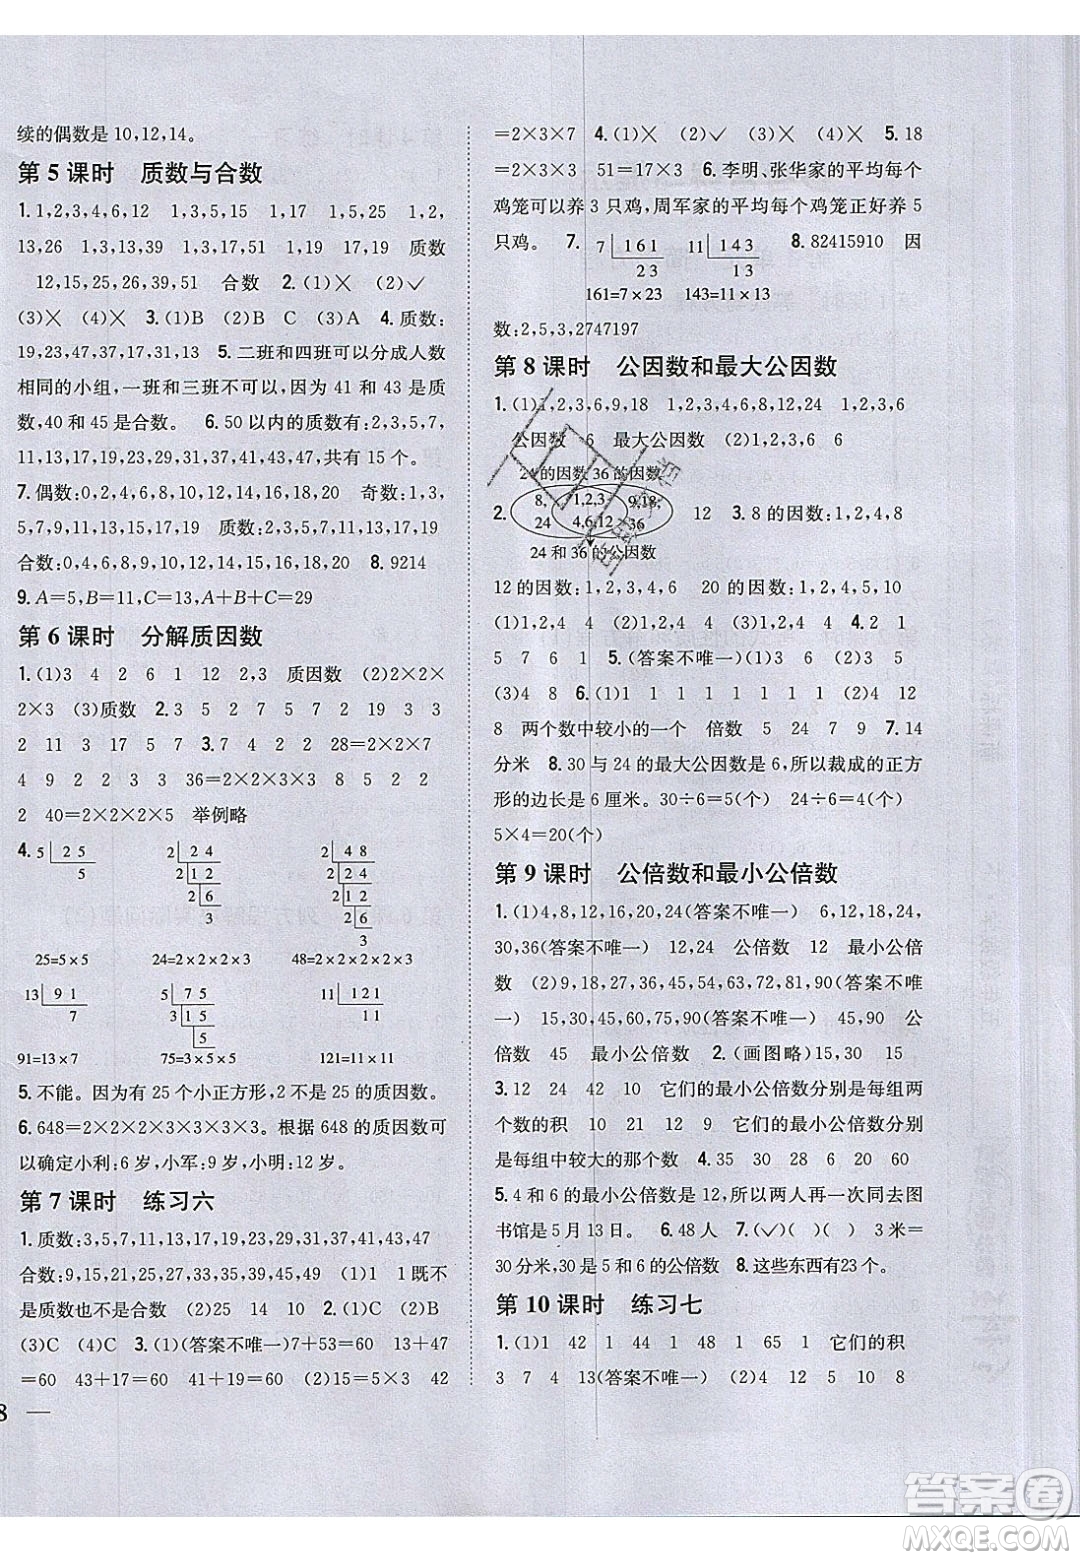 续的偶数是 10,12,14。
第 5 课时　质数与合数
1. 1,2,3,4,6,12　1,3,5,15　1,17　1,5,25　1,2,
13,26　1,3,13,39　1,3,17,51　1,19　17,19　质数
12,15,25,26,39,51　合数　2. (1)✕　(2)✓
(3)✕　(4)✕　3. (1)B　(2)B　C　(3)A　4. 质数:
19,23,47,37,31,13　5. 二班和四班可以分成人数
相同的小组,一班和三班不可以,因为 41 和 43 是质
数,40 和 45 是合数。　6. 50 以内的质数:2,3,5,7,
11,13,17,19,23,29,31,37,41,43,47,共有 15 个。
7. 偶数:0,2,4,6,8,10,12,14,16,18,20　奇数:1,3,
5,7,9,11,13,15,17,19　质数:2,3,5,7,11,13,17,19
合数:4,6,8,9,10,12,14,15,16,18,20　8. 9214
9. A=5,B=11,C=13,A+B+C=29
第 6 课时　分解质因数
1. (1)3　4　2　6　1　12　2,3　质因数　(2)2×2×
2×3　(3)质数　2. 3　5　7　5　7　2　19　3　3
2　11　3　17　5　7　3. 7　4　2　2　28=2×2×7
4　9　2　2　3　3　36=2×2×3×3　8　5　2　2
2　40=2×2×2×5　举例略
4. 5 25　2 24　2 48
5　2 12　2 24
2 6　2 12
3　2 6
3
25=5×5　24=2×2×2×3　48=2×2×2×2×3
13 91　5 75　11 121
7　3 15　11
5
91=13×7　75=3×5×5　121=11×11
5. 不能。因为有 25 个小正方形,2 不是 25 的质因数。
6. 648=2×2×2×3×3×3×3。根据 648 的质因数可
以确定小利:6 岁,小军:9 岁,小明:12 岁。
第 7 课时　练习六
1. 质数:3,5,7,11,13,17,19,23,29,31,37,41,43,47
合数:9,15,21,25,27,33,35,39,45,49　(1)1　1 既不
是质数也不是合数　(2)25　14　2. (1)D　(2)B
(3)C　(4)C　3. (1)(答案不唯一)7+53=60　13+47
=60　43+17=60　(2)15=5×3　10=2×5　42
=2×3×7　4. (1)✕　(2)✓　(3)✕　(4)✕　5. 18
=2×3×3　15=3×5　51=17×3　6. 李明、张华家的平均每个
鸡笼可以养 3 只鸡,周军家的平均每个鸡笼正好养 5
只鸡。　7. 7 161　11 143　8. 82415910　因
23　13
161=7×23　143=11×13
数:2,5,3,2747197
第 8 课时　公因数和最大公因数
1. (1)1,2,3,6,9,18　1,2,3,4,6,8,12,24　1,2,3,6
公因数　6　最大公因数　(2)1,2,3,6　6
24 的因数 36 的因数
2. 8, 24　1,2,3 4,6,12　9,18, 36　12　3. 8 的因数:1,2,4,8
24 和 36 的公因数
12 的因数:1,2,3,4,6,12　20 的因数:1,2,4,5,10,20
(1)1,2,4　4　(2)1,2,4　4　(3)1,2,4　4　4. 2　1
5　7　6　1　5. (答案不唯一)(1)3　5　(2)3　5
(3)4　8　6. (1)1　1　1　1　1　1　1　(2)4　12
8　两个数中较小的一个　倍数　5　24　7　9　7. 14
分米　8. 30 与 24 的最大公因数是 6,所以裁成的正方
形的边长是 6 厘米。30÷6=5(个)　24÷6=4(个)
5×4=20(个)
第 9 课时　公倍数和最小公倍数
1. (1)4,8,12,16,20,24(答案不唯一)　6,12,18,24,
30,36(答案不唯一)　12,24　公倍数　12　最小公倍
数　(2)9,18,27,36,45,54,63,72,81,90(答案不唯
一)　15,30,45,60,75,90(答案不唯一)　45,90　公
倍数　45　最小公倍数　2. (画图略)15,30　15
3. 12　24　42　10　它们的最小公倍数分别是每组两
个数的积　10　21　12　9　它们的最小公倍数分别
是每组中较大的那个数　4. 15　12　18　20　60
5. 4 和 6 的最小公倍数是 12,所以两人再一次同去图
书馆是 5 月 13 日。　6. 48 人　7. (✓)(　)　3 米=
30 分米,30 是 5 和 6 的公倍数　8. 这些东西有 23 个。
第 10 课时　练习七
1. (1)1　42　1　44　1　48　1　65　1　它们的积
3　7　4　13(答案不唯一)　(2)4　15　5　10　8
8 —
答案圈
MXQE.COM